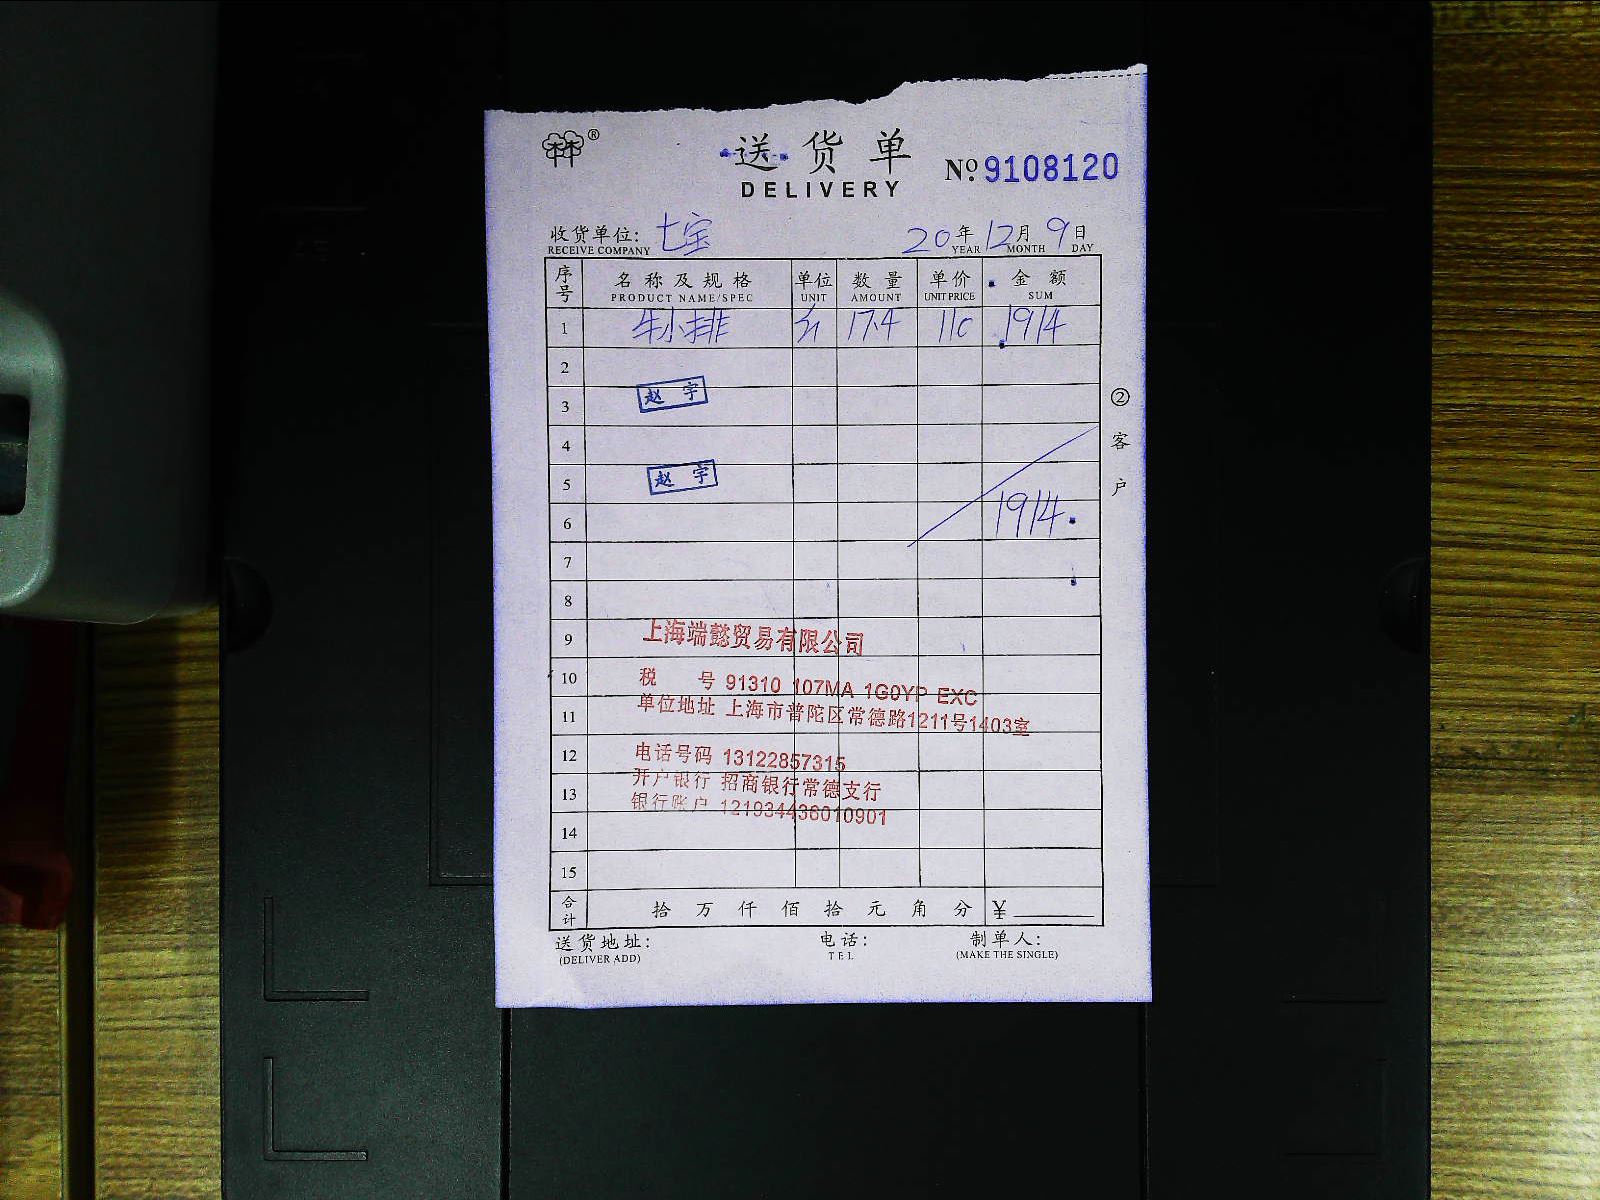 ® 送货单 No. 9108120
DELIVERY
收货单位: 七宝 20年12月9日
RECEIVE COMPANY YEAR MONTH DAY
序号 名称及规格 单位 数量 单价 金额
PRODUCT NAME/SPEC UNIT AMOUNT UNIT PRICE SUM
1 牛小排 斤 17.4 110 1914
2
3 赵宇
4
5 赵宇
6 1914.
7
8
9 上海端懿贸易有限公司
10 税号 91310 107MA 1G0YP EXC
11 单位地址 上海市普陀区常德路1211号1403室
12 电话号码 13122857315
13 开户银行 招商银行常德支行
银行账户 121934436010901
14
15
合计 拾万仟佰拾元角分 ¥
② 客户
送货地址: 电话: 制单人:
(DELIVER ADD) TEL (MAKE THE SINGLE)